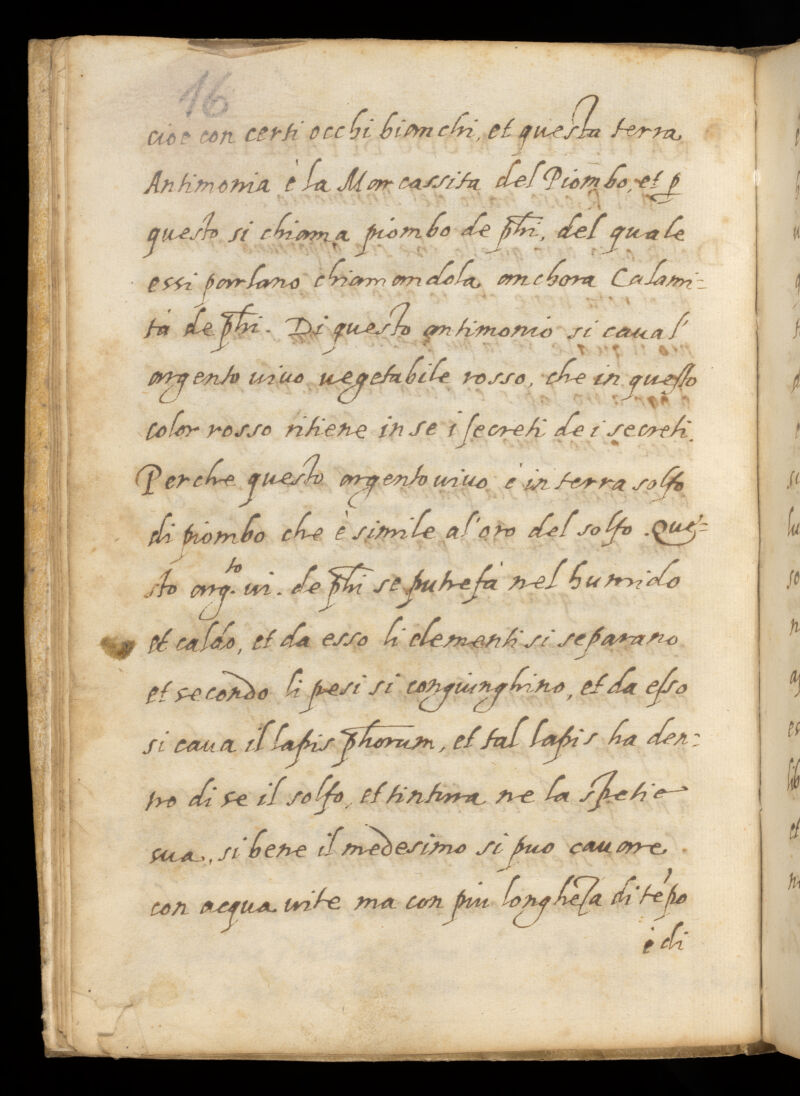 16
cioe con certi occhi bianchi, et questa terra
Antimonia è la Marcassita del Piombo, et p
questo si chiama piombo de phi, del quale
essi parlano chiamandola anchora Calami=
tà de phi. Di questo antimonio si caua l'
argento uiuo uegetabile rosso, che in questo
color rosso ritiene in se i secreti de i secreti.
Perche questo argento uiuo è in terra solfo
di piombo che è simile al'oro del solfo. Que=
sto arg.to ui. de phi se putrefà nel humido
et caldo, et da esso li elementi si separano
et secondo li pesi si congiunghino, et da esso
si caua il lapis phorum, et tal lapis ha den=
tro di se il solfo, et tintura ne la spetie
sua, si bene il medesimo si puo cauare
con acqua uite ma con piu longheza di tēpo
e di